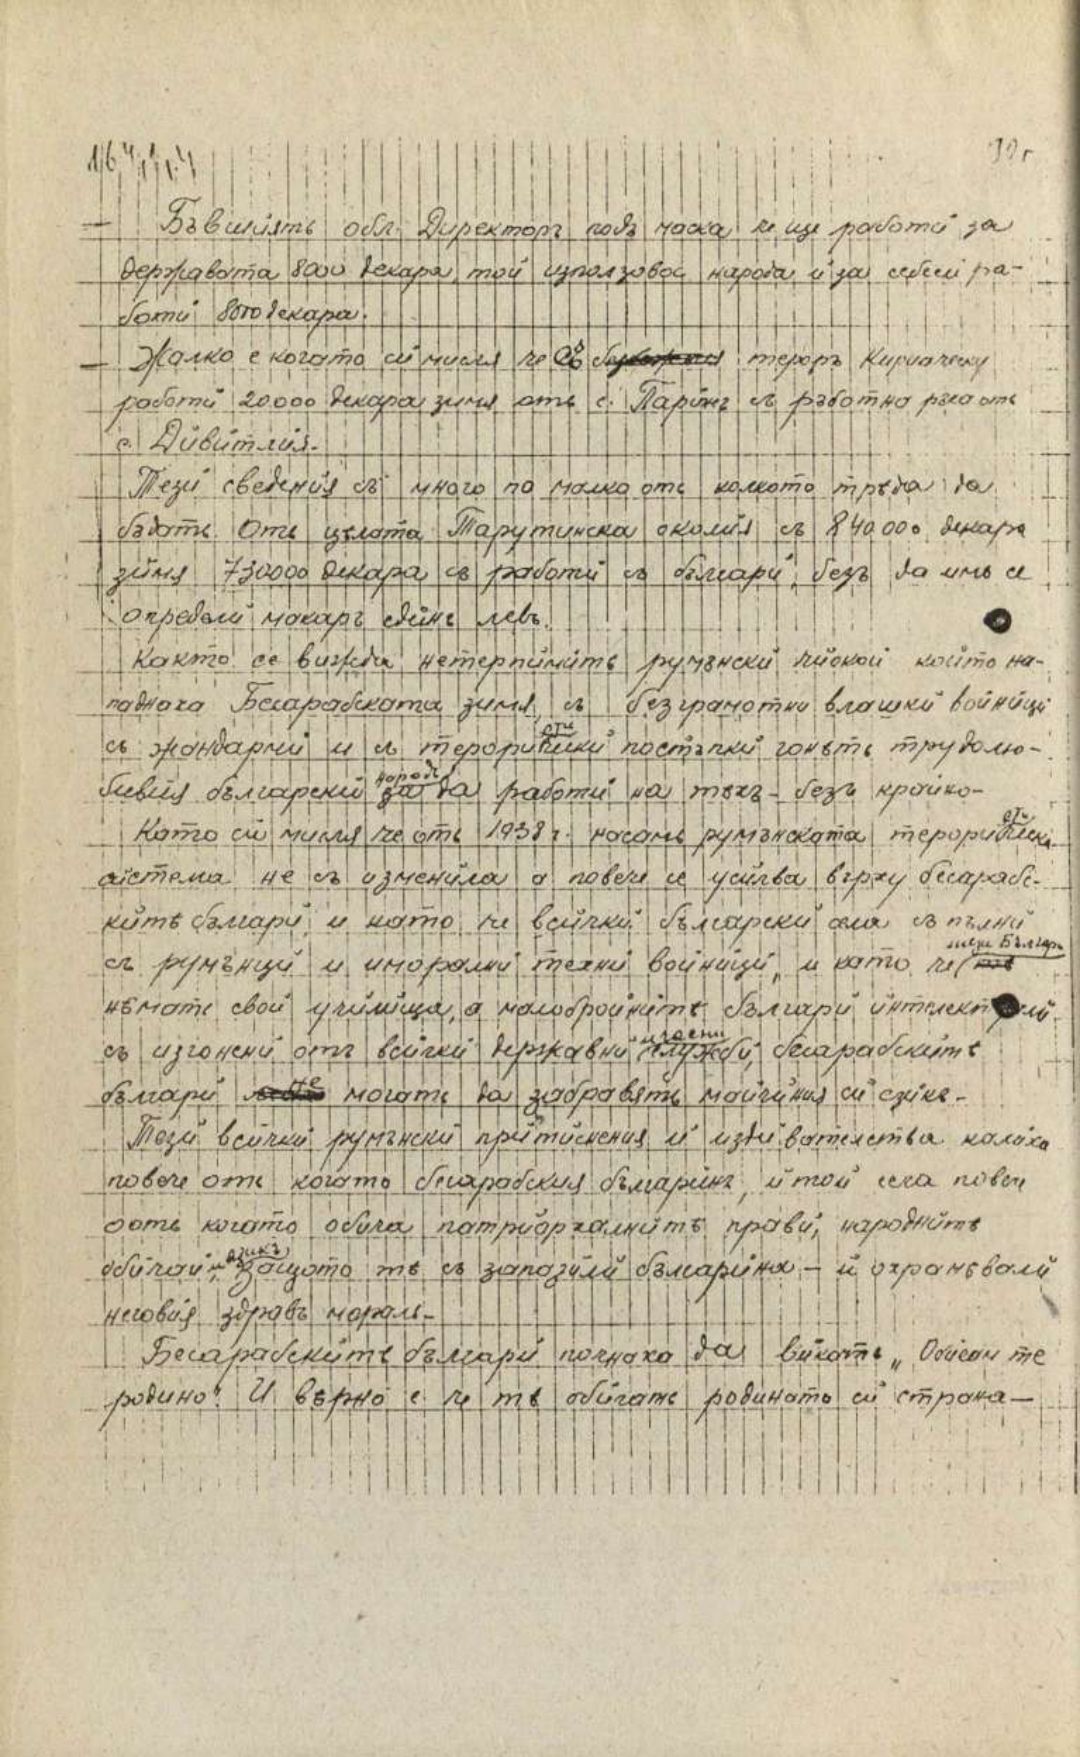 — Бъвшиятъ обл. Директоръ подъ маска че ще работи за
държавата 8000 декара, той използовой народа и за себеси ра-
боти 8000 декара.
— Жалко е когато си мисля че Съ терора Кириаческу
работи 20000 декара земя отъ с. Парѝнъ съ работна ръка отъ
с. Дивитлия.
Тези сведения съ много по малко отъ колкото трѣба да
бѫдатъ. Отъ цѣлата Тарутинска околия съ 840.000 декара
зимя 730000 декара се работи съ бѫлгари, безъ да имъ се
определи макаръ единъ левъ.
Както се вижда нетерпимитѣ румънски чиокои който на-
паднаха Бесарабската зимя, съ безграмотни влашки войници
съ жандарми и съ терористически постѫпки гонѣтъ трудолю-
бивия български народъ да работи на тѣхъ - безъ крайно-
Като си мисля че отъ 1938 г. насамъ румънската терористическа
система не съ изменила а повече се усилва върху бесарабс-
китѣ бѫлгари, и като че всички български села съ пълни
съ румънци и иморални техни войници, и като че тези Българи
нѣматъ свои училища, а малобройнитѣ бѫлгари интелектуали
съ изгонени отъ всички държавни служби, бесарабскитѣ
бѫлгари не могатъ да забравятъ майчиния си езикъ -
Тези всички румънски притиснения и издивателства калиха
повече отъ когато бесарабския бѫлгаринъ, и той сега повече
оотъ когато обича патриархалнитѣ прави, народнитѣ
обичаи, и езикъ защото тѣ съ запазили бѫлгарина - и охранѣвали
неговия здравъ моралъ -
Бесарабскитѣ бѫлгари почнаха да викатъ „Обичам те
родино". И вѣрно е че тѣ обичатъ родината си страна —